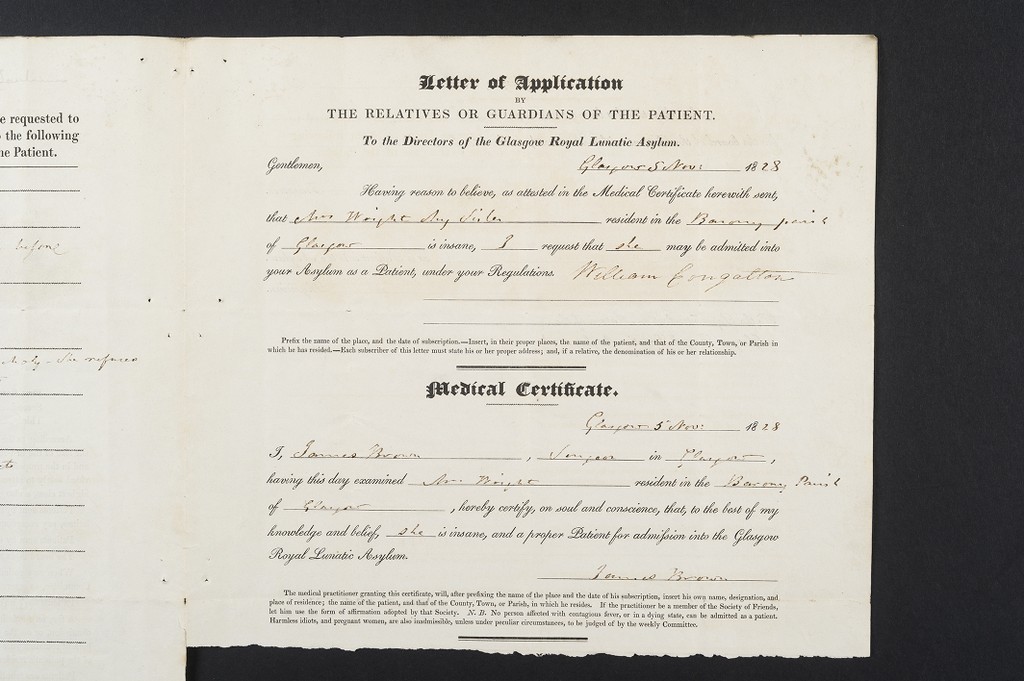 e requested to
the following
e Patient.
before
She refuses
Letter of Application
BY
THE RELATIVES OR GUARDIANS OF THE PATIENT.
To the Directors of the Glasgow Royal Lunatic Asylum.
Gentlemen, Glasgow 5 Novr 1828
Having reason to believe, as attested in the Medical Certificate herewith sent,
that Mrs Wright My Sister resident in the Barony parish
of Glasgow is insane, I request that she may be admitted into
your Asylum as a Patient, under your Regulations. William Congalton
Prefix the name of the place, and the date of subscription.—Insert, in their proper places, the name of the patient, and that of the County, Town, or Parish in
which he has resided.—Each subscriber of this letter must state his or her proper address; and, if a relative, the denomination of his or her relationship.
Medical Certificate.
Glasgow 5 Novr 1828
I, James Brown, Surgeon in Glasgow,
having this day examined Mrs Wright resident in the Barony Parish
of Glasgow, hereby certify, on soul and conscience, that, to the best of my
knowledge and belief, she is insane, and a proper Patient for admission into the Glasgow
Royal Lunatic Asylum.
James Brown
The medical practitioner granting this certificate, will, after prefixing the name of the place and the date of his subscription, insert his own name, designation, and
place of residence; the name of the patient, and that of the County, Town, or Parish, in which he resides. If the practitioner be a member of the Society of Friends,
let him use the form of affirmation adopted by that Society. N. B. No person affected with contagious fever, or in a dying state, can be admitted as a patient.
Harmless idiots, and pregnant women, are also inadmissible, unless under peculiar circumstances, to be judged of by the weekly Committee.